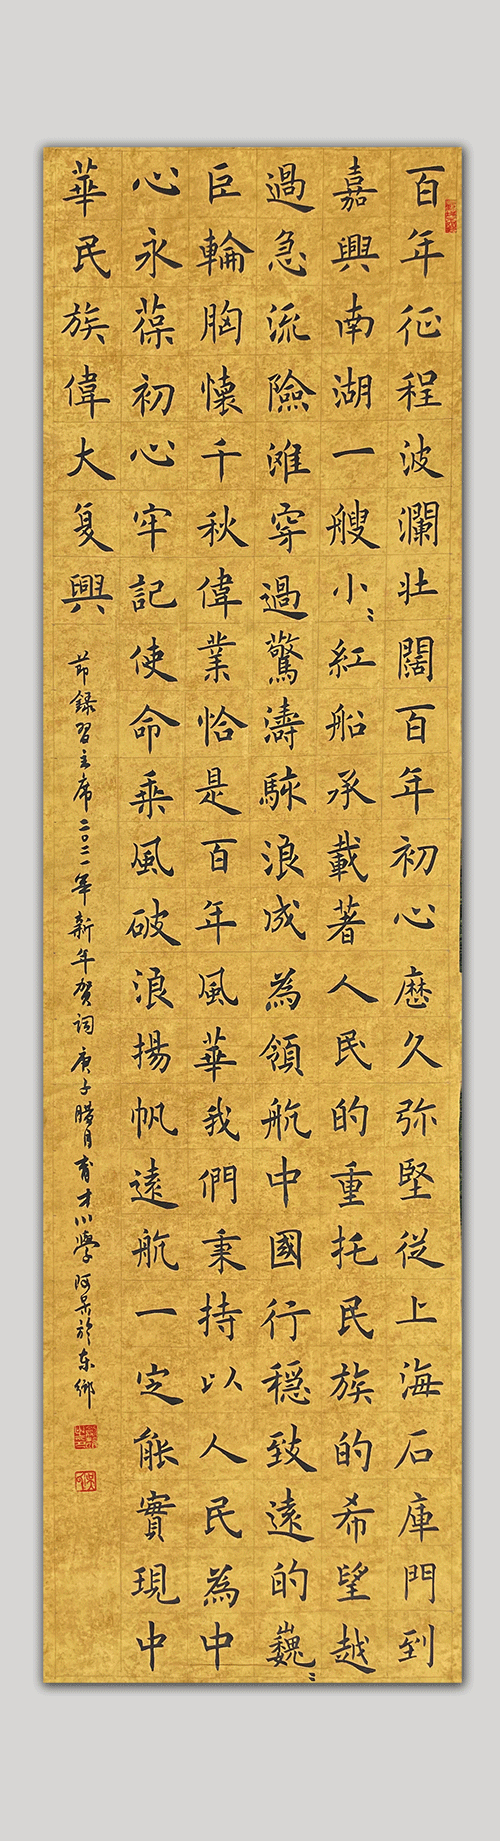 百年征程波瀾壮闊百年初心歷久弥堅從上海石庫門到
嘉興南湖一艘小〻紅船承載著人民的重托民族的希望越
過急流險滩穿過驚濤駭浪成為領航中國行穩致遠的巍〻
巨輪胸懷千秋偉業恰是百年風華我們秉持以人民為中
心永葆初心牢記使命乘風破浪揚帆遠航一定能實現中
華民族偉大复興
節録習主席二〇二一年新年贺词庚子腊月育才小學阿呆於东鄉